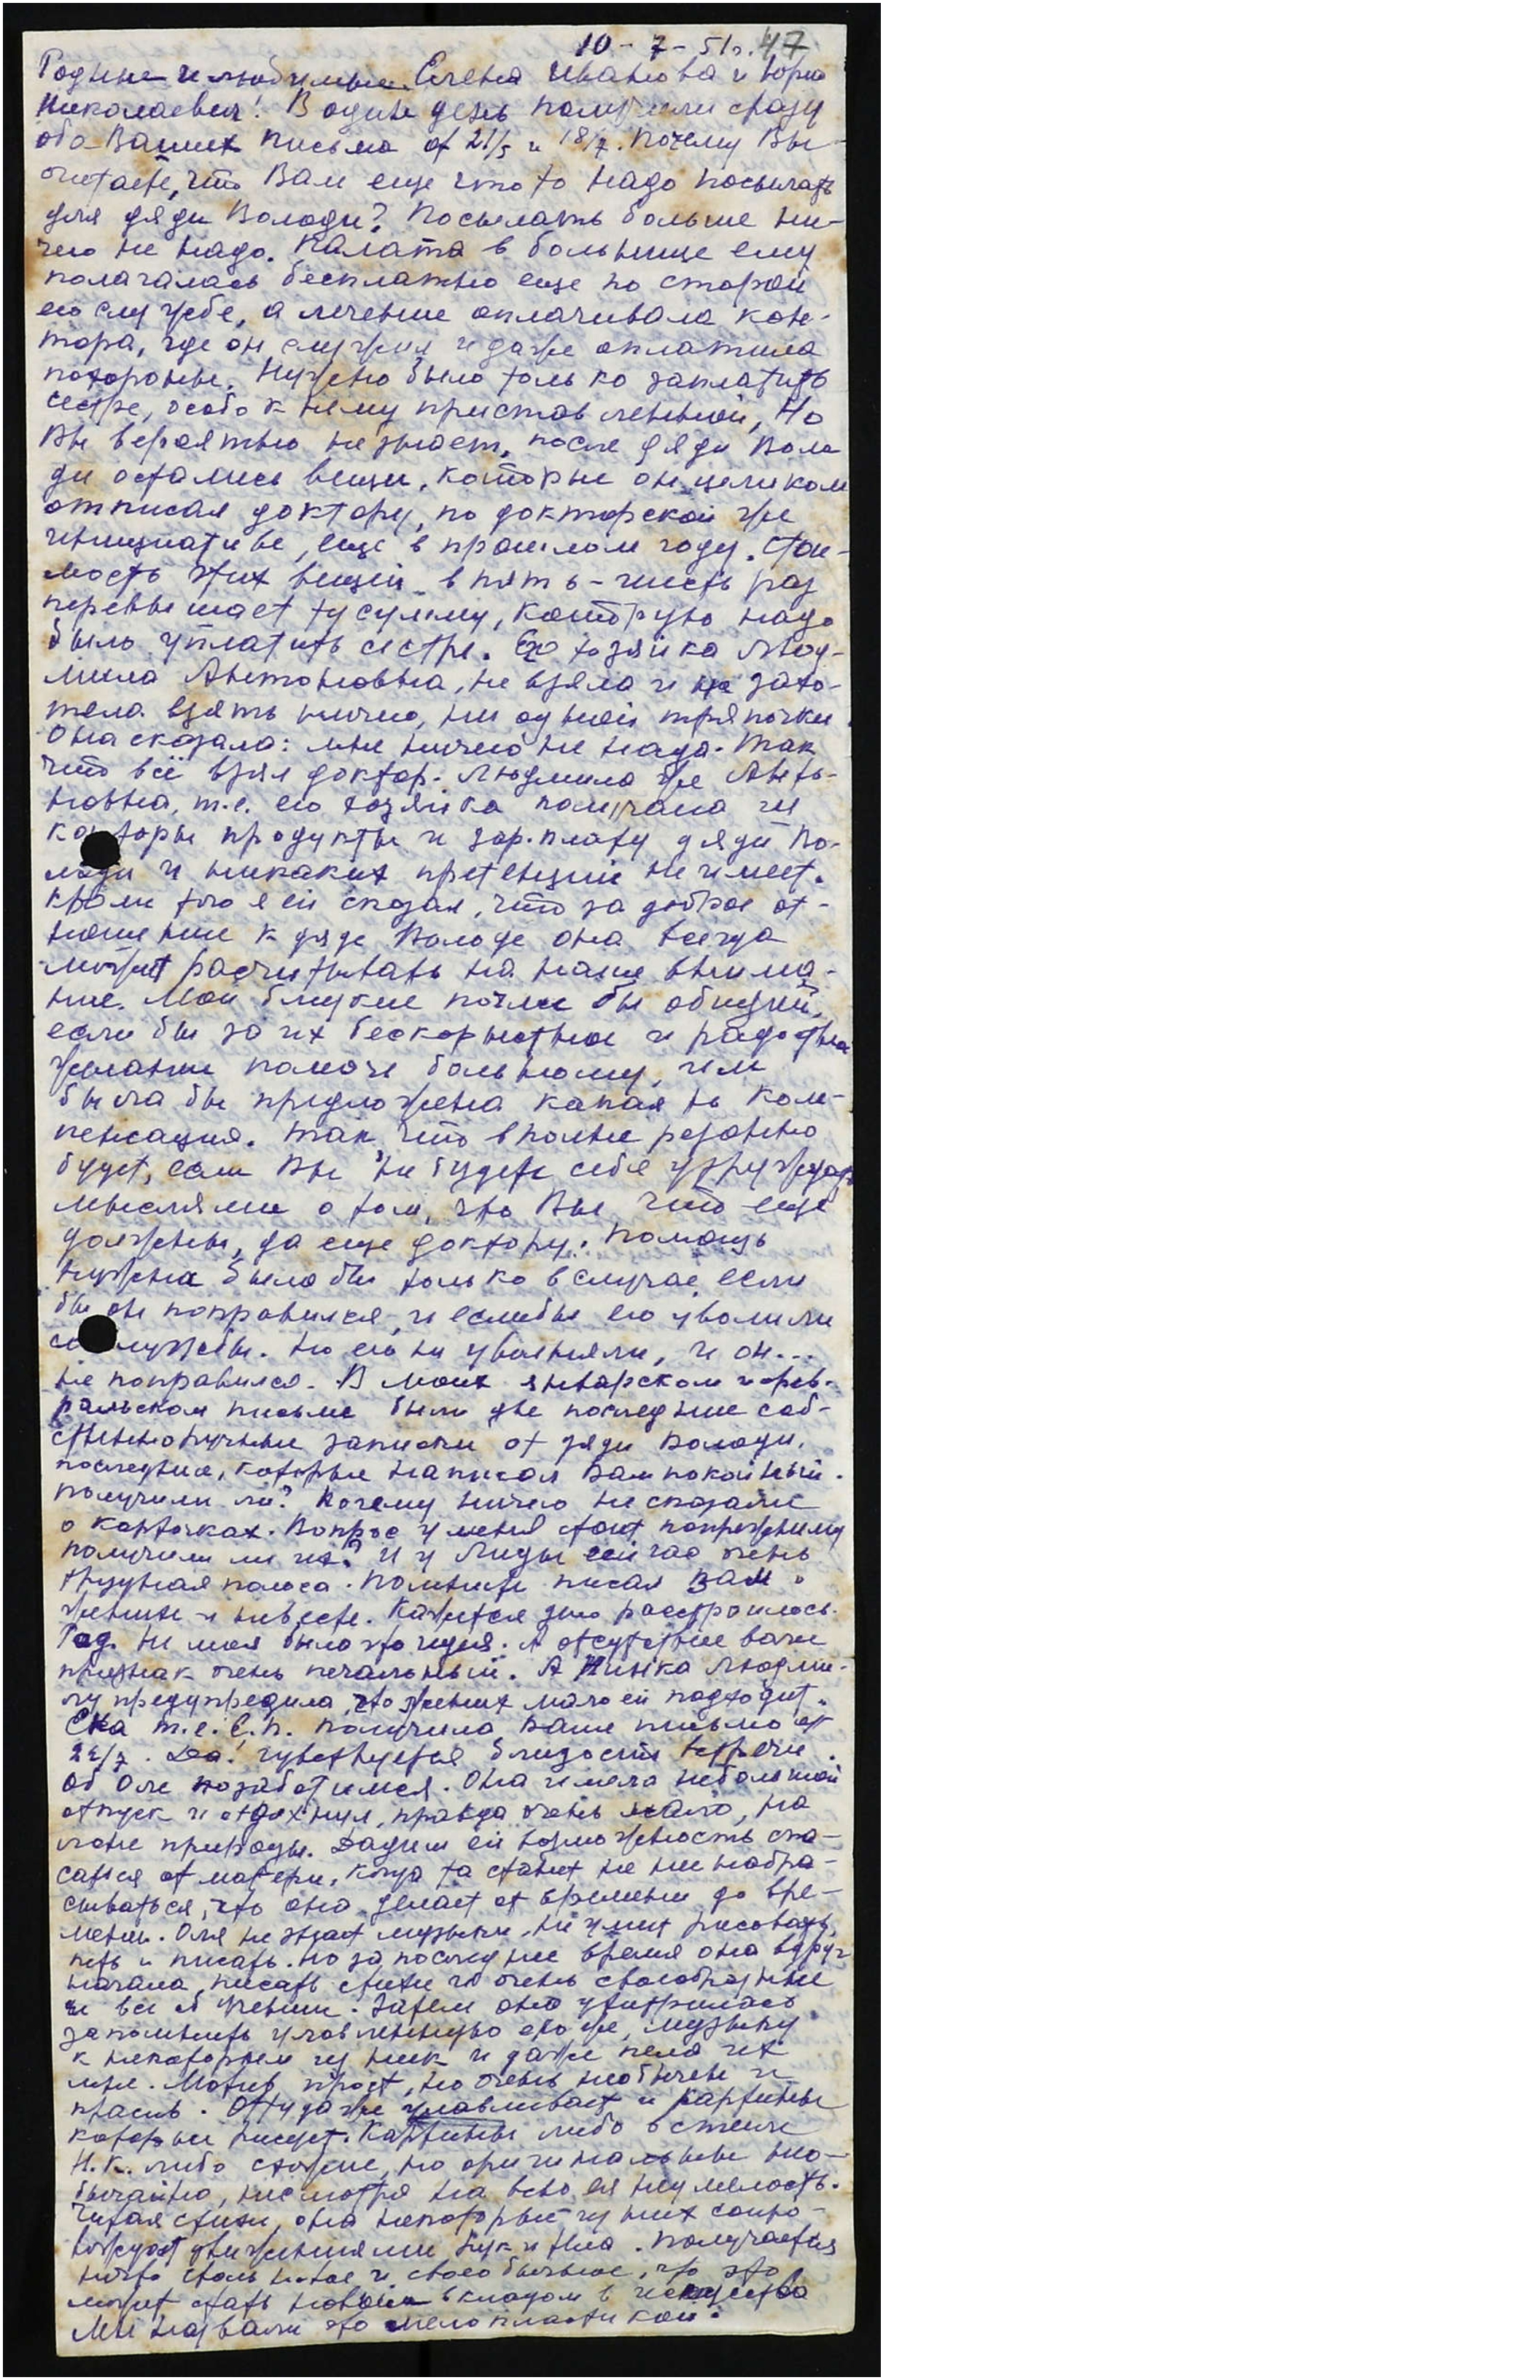 10 - 7 - 51г. 47
Родные и любимые Елена Ивановна и Юрий
Николаевич! В один день получили сразу
оба Ваших письма от 21/5 и 18/7. Почему Вы
считаете, что Вам еще что то надо посылать
для дяди Володи? Посылать больше ни-
чего не надо. Палата в больнице ему
полагалась бесплатно еще по старой
его службе, а лечение оплачивала кон-
тора, где он служил и даже оплатила
похороны. Нужно было только заплатить
сестре, особо к нему приставленной, Но
Вы вероятно не знаете, после дяди Воло
ди остались вещи, которые он целиком
отписал доктору, по докторской же
инициативе, еще в прошлом году. Стои-
мость этих вещей в пять-шесть раз
перевышает ту сумму, которую надо
было уплатить сестре. Его хозяйка Люд-
мила Антоновна, не взяла и не захо-
тела взять ничего, ни одной тряпочки.
Она сказала: мне ничего не надо. Так
что всё взял доктор. Людмила же Анто-
новна, т.е. его хозяйка получала из
конторы продукты и зар.плату дяди Во-
лоди и никаких претензий не имеет.
Кроме того я ей сказал, что за доброе от-
ношение к дяде Володе она всегда
может расчитывать на наше внима-
ние. Мои близкие почли бы обидой,
если бы за их бескорыстное и радостное
желание помочь больному, им
была бы предложена какая нб ком-
пенсация. Так что вполне резонно
будет, если Вы не будете себя утруждать
мыслями о том, что Вы что еще
должны, да еще доктору. Помощь
нужна была бы только в случае если
бы он поправился, и если бы его уволили
со службы. Но его не уволили, и он...
не поправился. В моих январском и фев-
ральском письме были две последние соб-
ственноручные записки от дяди Володи,
последние, которые написал Вам покойный.
Получили ли? Почему ничего не сказали
о карточках. Вопрос у меня стоит попрежнему
получили ли их? И у Лиды сейчас очень
трудная полоса. Помните писал Вам о
женихе и невесте. Кажется дело расстроилось.
Рад. Не моя была это идея. А отсутствие вачи
признак очень печальный. А Нинка Людми-
лу предупредила, что жених мало ей подходит.
Ека т.е. Е.П. получила Ваше письмо от
22/7. Да! чувствуется близость встречи.
Об Оле позаботимся. Она имела небольшой
отпуск и отдохнула, правда очень мало, на
лоне природы. Дадим ей возможность спа-
саться от матери, когда та станет на нее набра-
сываться, что она делает от времени до вре-
мени. Оля не знает музыки, не умеет рисовать,
петь и писать. Но за последнее время она вдруг
начала писать стихи и очень своеобразные
и все об Учении. Затем она ухитрилась
запомнить уловленную ею же, музыку
к некоторым из них и даже пела их
мне. Мотив прост, но очень необычен и
красив. Оттуда же улавливает и картины
которые рисует. Картины либо в стиле
Н.К. либо схожие, но оригинальные нео-
бычайно, несмотря на всю ея неумелость.
Читая стихи, она некоторые из них сопро-
вождает движениями рук и тела. Получается
нечто столь новое и своеобычное, что это
может стать новым вкладом в искусство
Мы назвали это мелопластикой.